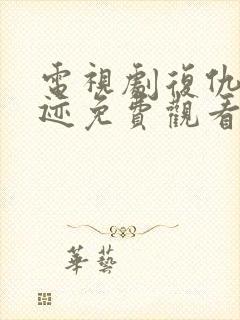 電視劇復仇
迹免費觀看
華藝